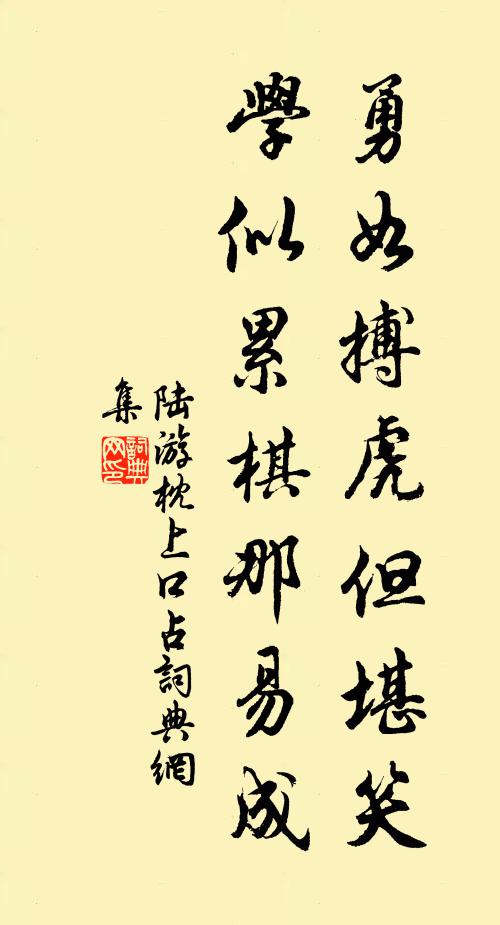 勇如搏虎但堪笑
學似累棋那易成
陆游枕上口占詞典網
集
詞典网印